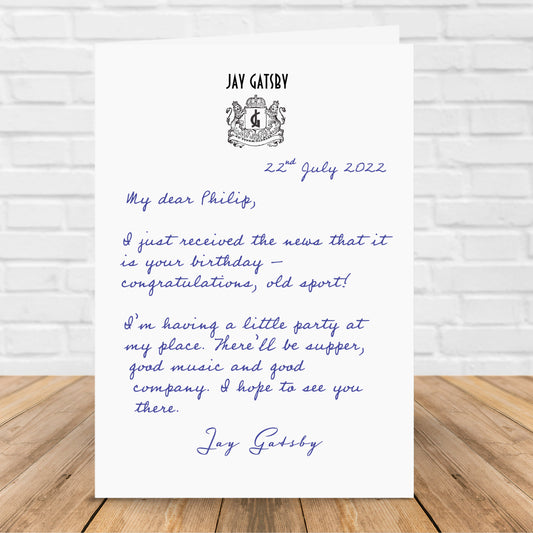 JAY GATSBY
JG
22nd July 2022
My dear Philip,
I just received the news that it
is your birthday –
congratulations, old sport!
I'm having a little party at
my place. There'll be supper,
good music and good
company. I hope to see you
there.
Jay Gatsby